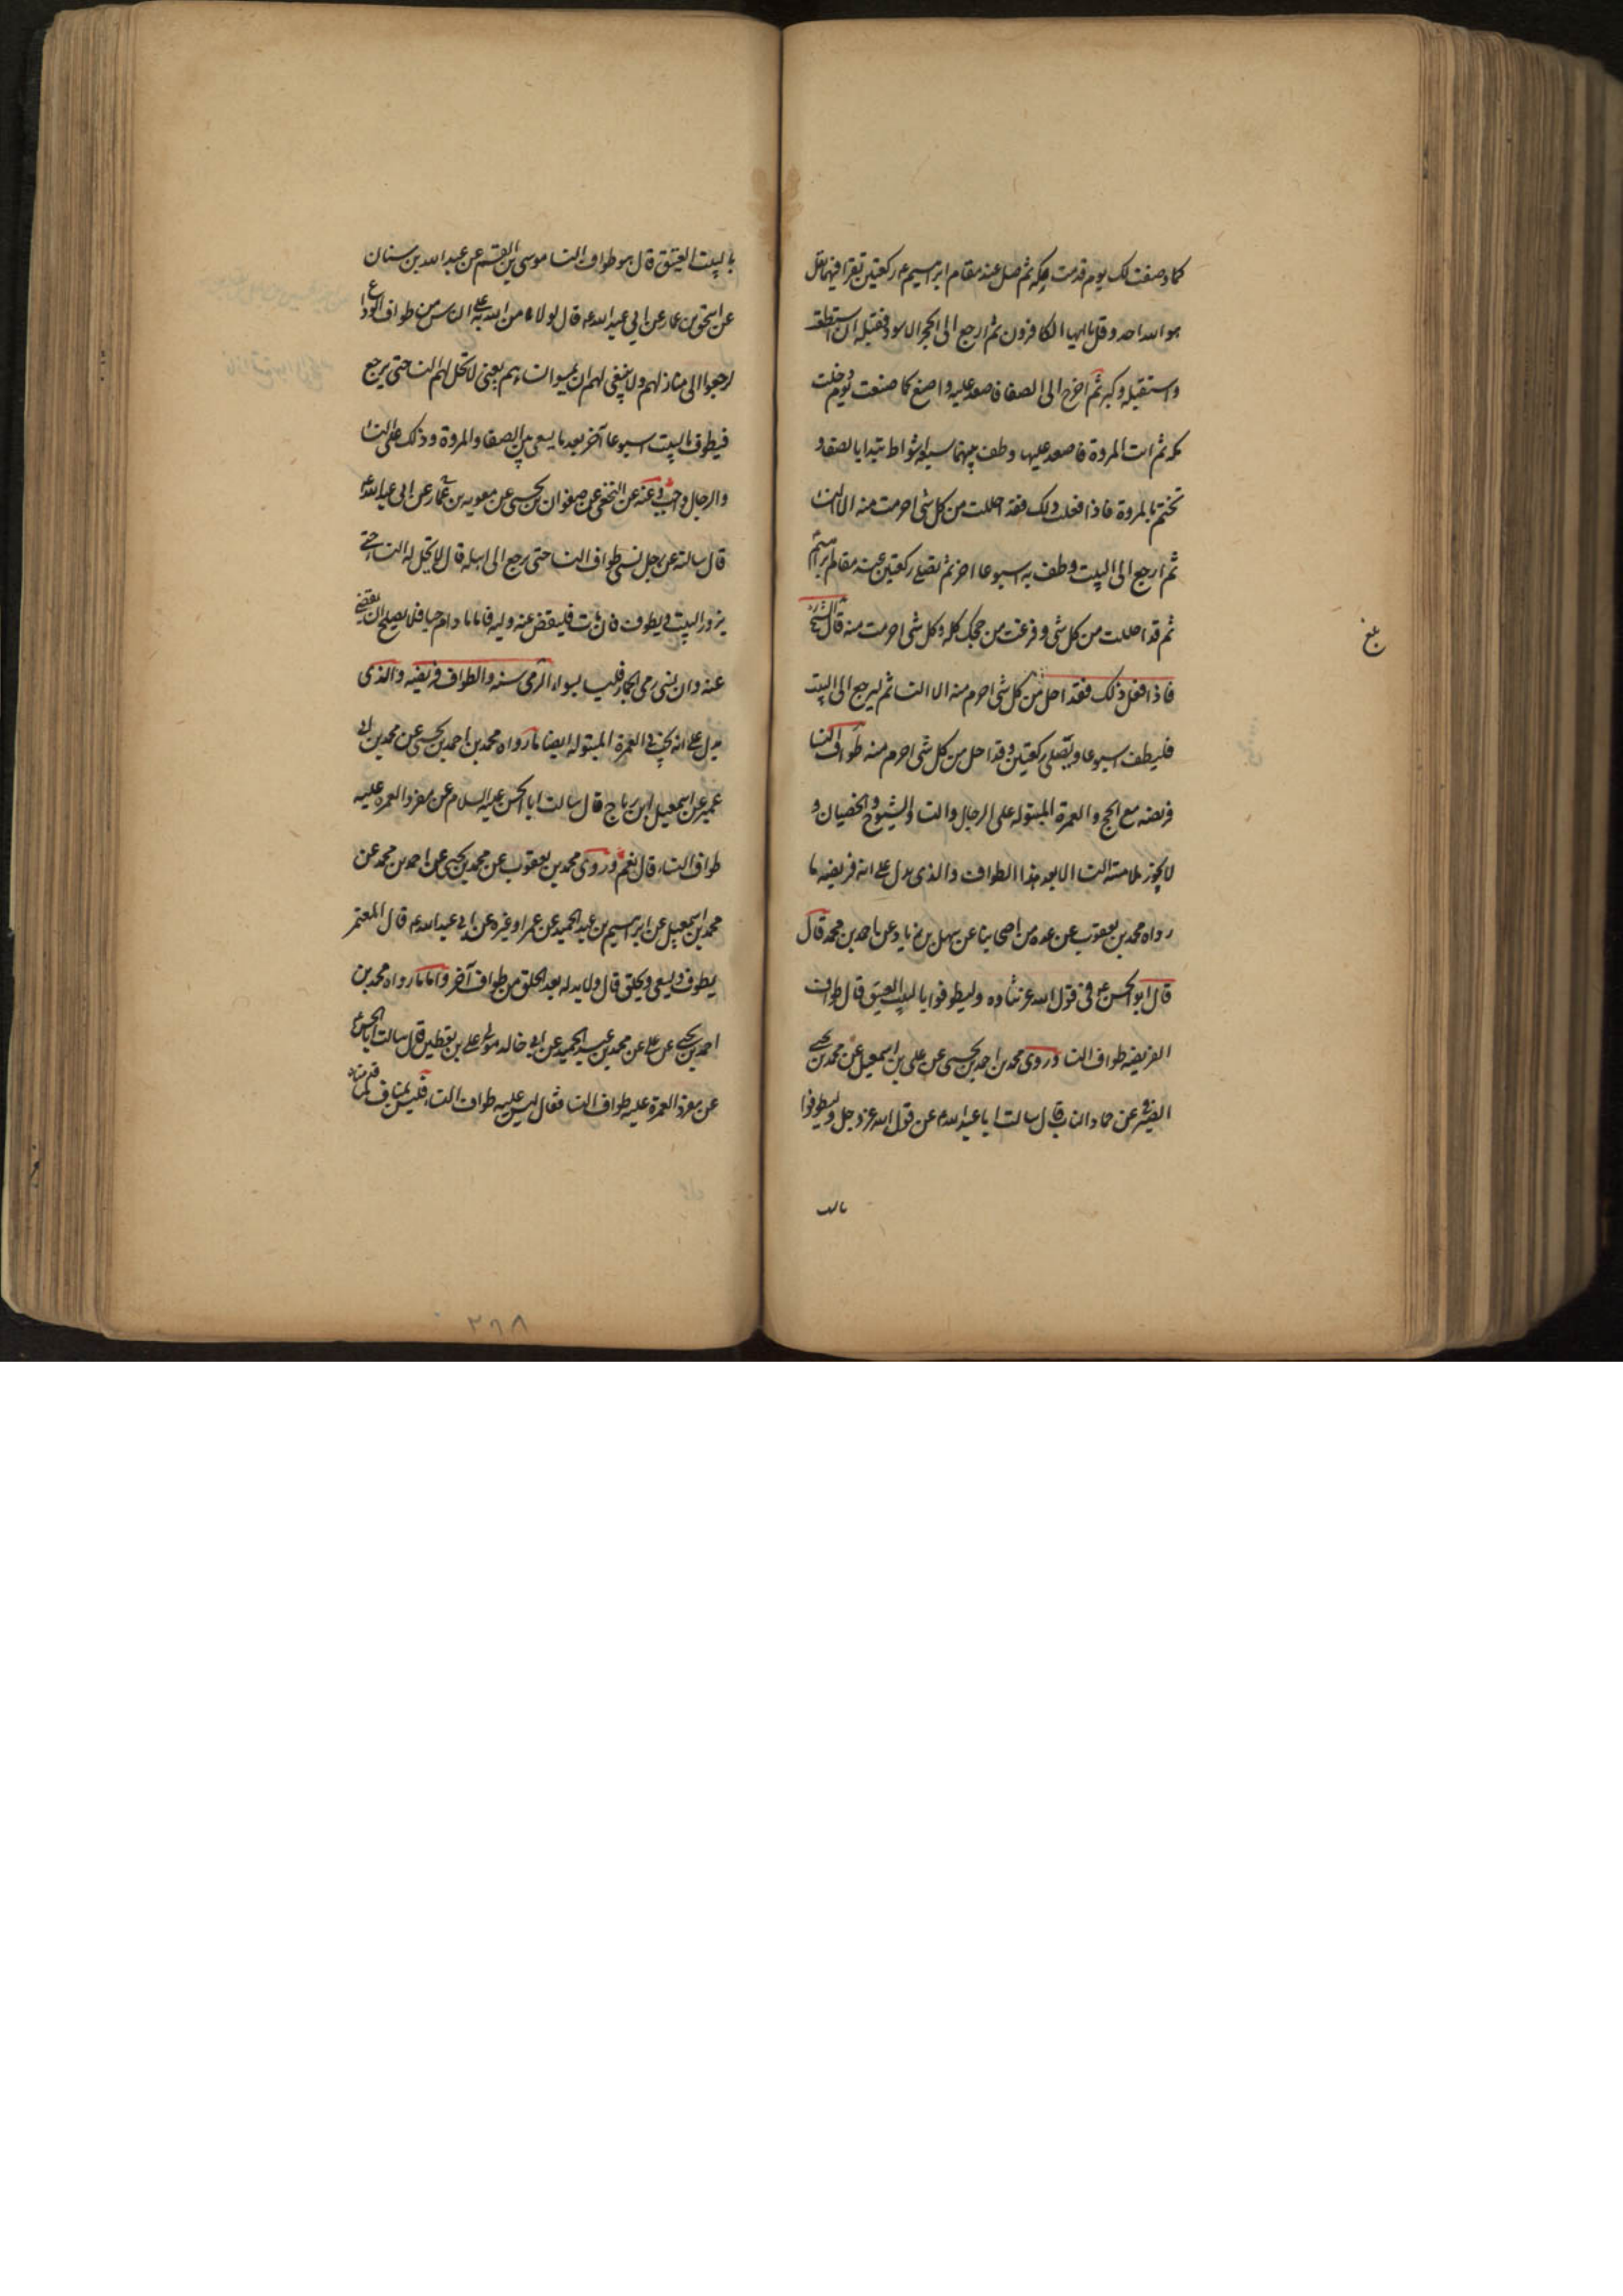 كما وصفت لك يوم قدمت مكه ثم صل عند مقام ابرهيم ع ركعتين تقرا فيهما بقل
هو الله احد وقل يا ايها الكافرون ثم ارجع الى الحجر الاسود فقبله ان استطعت
واستقبله وكبر ثم اخرج الى الصفا فاصعد عليه واصنع كما صنعت يوم دخلت
مكه ثم ائت المروة فاصعد عليها وطف بينهما سبعة اشواط تبدا بالصفا و
تختم بالمروة فاذا فعلت ذلك فقد احللت من كل شى احرمت منه الا النسا
ثم ارجع الى البيت وطف به اسبوعا اخر ثم تصلى ركعتين عند مقام ابرهيم
ثم قد احللت من كل شى وفرغت من حجك كله وكل شى احرمت منه قال الشيخ ره
بلغ
فاذا فعل ذلك فقد احل من كل شى احرم منه الا النسا ثم ليرجع الى البيت
فليطف اسبوعا ويصلى ركعتين وقد احل من كل شى احرم منه طواف النسا
فريضه مع الحج والعمرة المبتوله على الرجال والنسا والشيوخ والخصيان و
لا يجوز ملامسة النسا الا بعد هذا الطواف والذى يدل على انه فريضه ما
رواه محمد بن يعقوب عن عده من اصحابنا عن سهل بن زياد عن احمد بن محمد قال
قال ابو الحسن ع فى قول الله عز ثناوه وليطوفوا بالبيت العتيق قال طواف
الفريضه طواف النسا وروى محمد بن احمد بن يحيى عن على بن اسمعيل عن محمد بن يحيى
الصيرفى عن حماد الناب قال سالت ابا عبد الله ع عن قول الله عز وجل وليطوفوا
بالبيت
بالبيت العتيق قال هو طواف النسا موسى بن القسم عن عبد الله بن سنان
عن اسحق بن عمار عن ابى عبد الله ع قال لولا ما من الله به على الناس من طواف الوداع
لرجعوا الى منازلهم ولا ينبغى لهم ان يمسوا نساءهم يعنى لا تحل لهم النسا حتى يرجع
فيطوف بالبيت اسبوعا آخر بعد ما يسعى بين الصفا والمروة وذلك على النسا
والرجال واجب وعنه عن النخعى عن صفوان بن يحيى عن معويه بن عمار عن ابى عبد الله ع
قال سالته عن رجل نسى طواف النسا حتى رجع الى اهله قال لا تحل له النسا حتى
يزور البيت ويطوف فان مات فليقض عنه وليه فاما ما دام حيا فلا يصلح ان يقضى
عنه وان نسى رمى الجمار فليسا بسواء الرمى سنه والطواف فريضه والذى
يدل على انه يجب فى العمرة المبتوله ايضا ما رواه محمد بن احمد بن يحيى عن محمد بن ابى
عمير عن اسمعيل بن رباح قال سالت ابا الحسن عليه السلام عن مفرد العمره عليه
طواف النساء قال نعم وروى محمد بن يعقوب عن محمد بن يحيى عن احمد بن محمد عن
محمد بن اسمعيل عن ابرهيم بن عبد الحميد عن عمر او غيره عن ابى عبد الله ع قال المعتمر
يطوف ويسعى ويحلق قال ولا بد له بعد الحلق من طواف آخر واما ما رواه محمد بن
احمد بن يحيى عن على عن محمد بن عبد الحميد عن ابى خالد مولى على بن يقطين قال سالت ابا الحسن ع
عن مفرد العمرة عليه طواف النسا فقال ليس عليه طواف النساء فليس بمناف لما قدمناه
٢٦٨